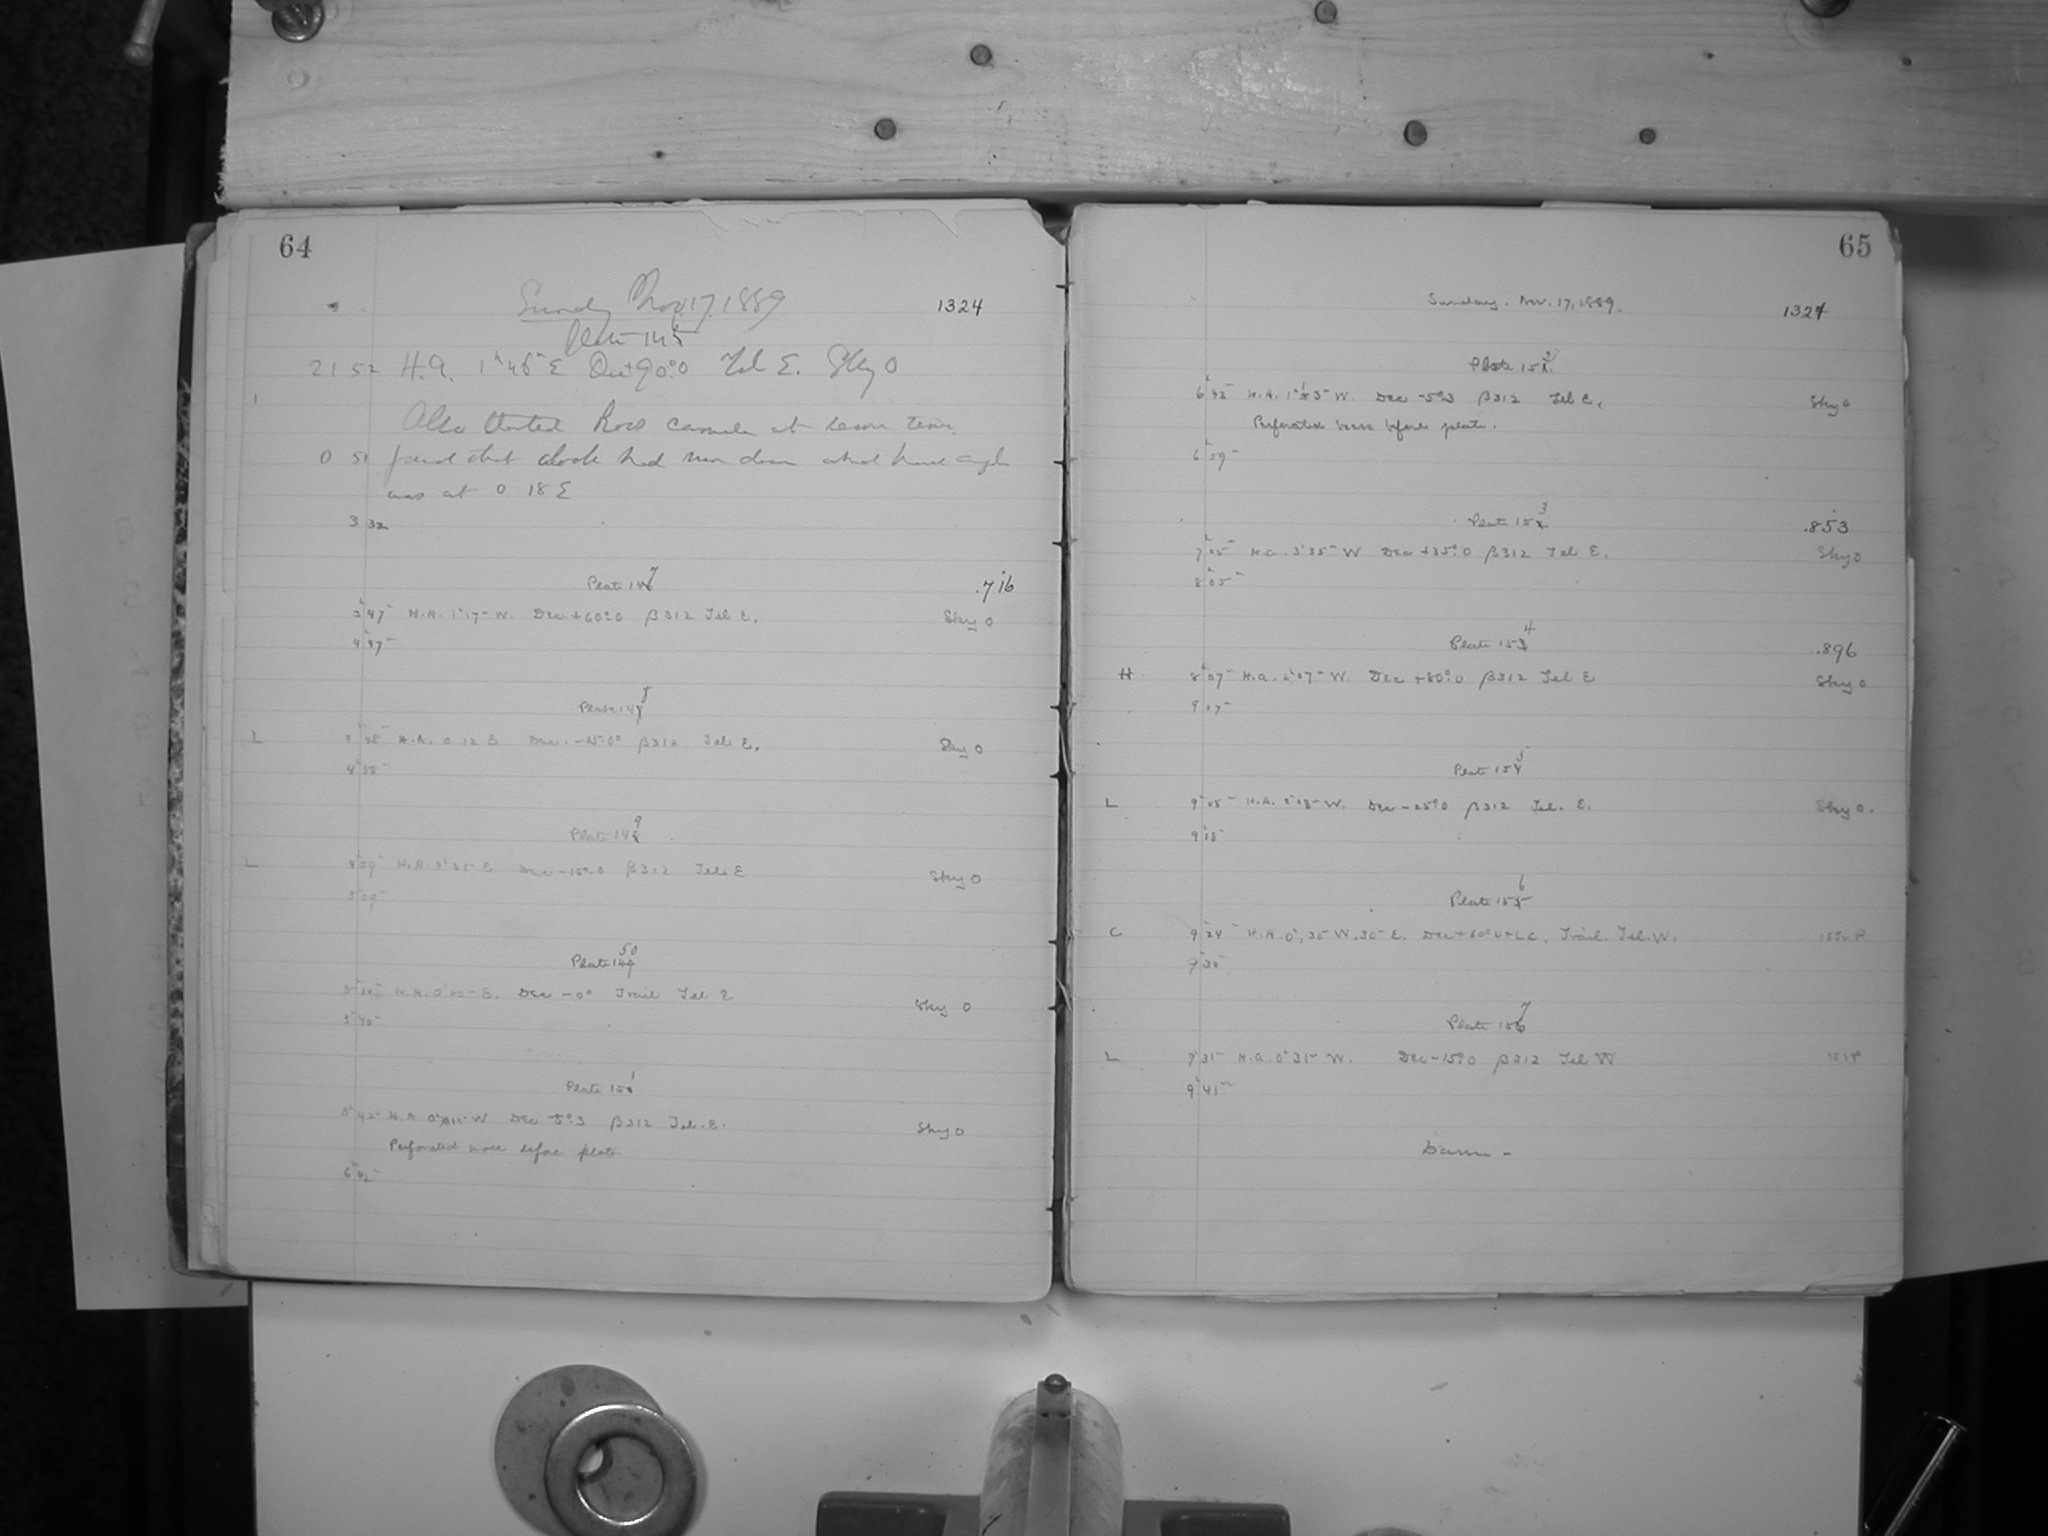 64
Sunday Nov. 17, 1889
1324
Plate 145
21 52 H.A. 1h 46m E Dec +90°.0 Tel E. Sky 0
Also started Ross camera at same time
0 51 found that clock had run down and hour angle
was at 0 18 E
3 32
Plate 147
.716
3h 47m H.A. 1h 17m W. Dec +60°.0 β312 Tel E. Sky 0
4h 47m
Plate 148
L H.A. 0 12 E Dec. -25°.0 β312 Tel E. Sky 0
4h 58m
Plate 149
L 4h 59m H.A. E Dec -15°.0 β312 Tel E Sky 0
5h 09m
Plate 150
E. Dec -0° Trail Tel E Sky 0
5h 40m
Plate 151
5h 42m H.A. W Dec -5°.3 β312 Tel. E. Sky 0
Perforated before plate.
6h 42m
65
Sunday. Nov. 17, 1889.
1324
Plate 152
6h 42m H.A. W. Dec -5°.3 β312 Tel E. Sky 0
Perforated before plate.
6h 59m
Plate 153
.853
7h 05m H.A. 3h 35m W Dec +35°.0 β312 Tel E. Sky 0
8h 05m
Plate 154
.896
H 8h 07m H.A. 2h 07m W. Dec +80°.0 β312 Tel E Sky 0
9 07m
Plate 155
L 9h 08m H.A. W. Dec -25°.0 β312 Tel. E. Sky 0.
9h 18m
Plate 156
C 9h 24m H.A. 0h, 30m W, 30m E. Dec +60° U+LC. Trail. Tel. W.
9h 30m
Plate 157
L 9h 31m H.A. 0h 31m W. Dec -15°.0 β312 Tel W
9h 41m
Dawn -